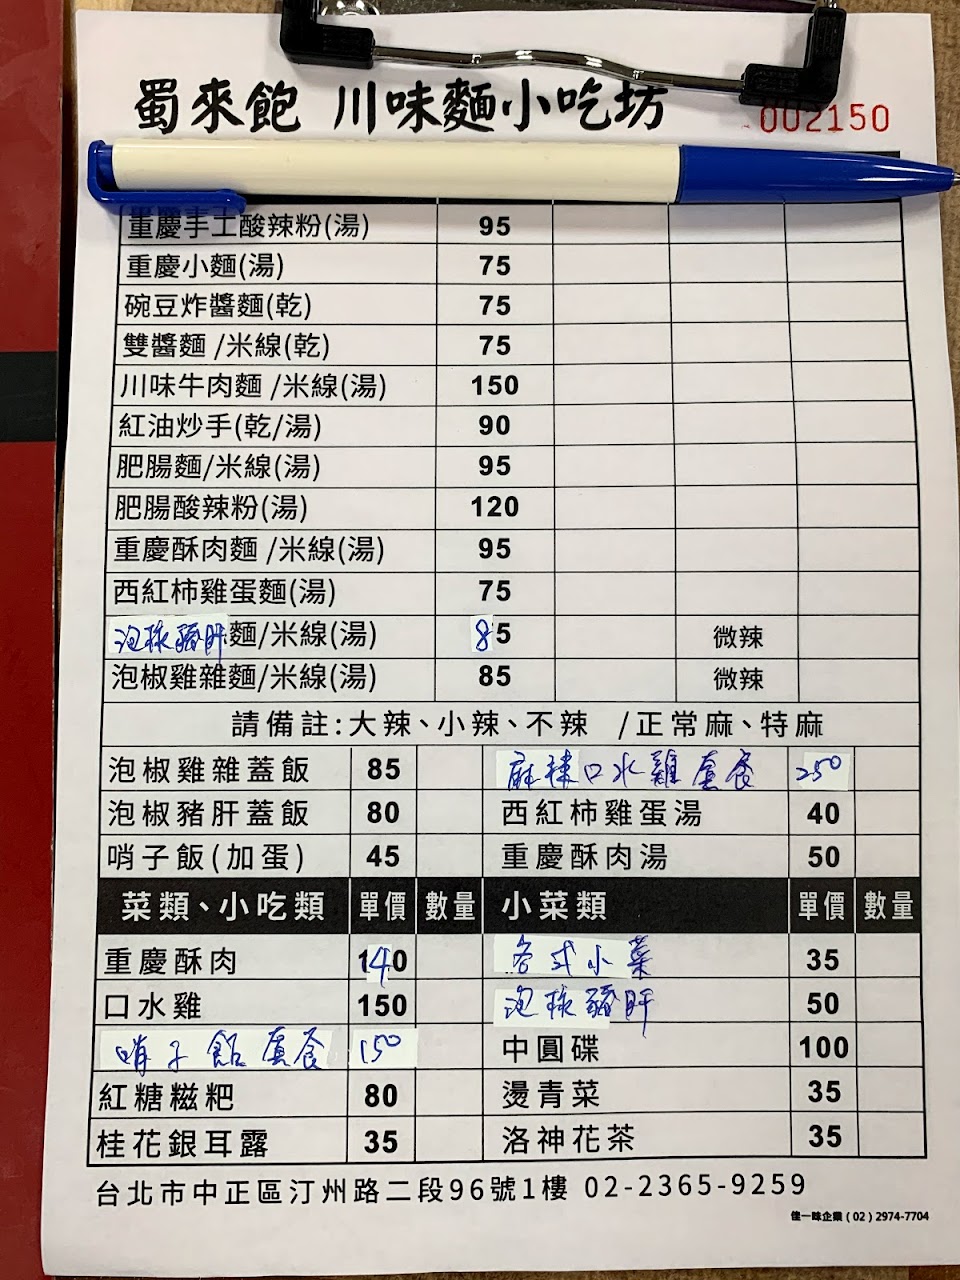 蜀來飽 川味麵小吃坊
002150
重慶手工酸辣粉(湯) 95
重慶小麵(湯) 75
碗豆炸醬麵(乾) 75
雙醬麵/米線(乾) 75
川味牛肉麵/米線(湯) 150
紅油炒手(乾/湯) 90
肥腸麵/米線(湯) 95
肥腸酸辣粉(湯) 120
重慶酥肉麵/米線(湯) 95
西紅柿雞蛋麵(湯) 75
泡椒豬肝麵/米線(湯) 85 微辣
泡椒雞雜麵/米線(湯) 85 微辣
請備註:大辣、小辣、不辣 /正常麻、特麻
泡椒雞雜蓋飯 85 麻辣口水雞套餐 250
泡椒豬肝蓋飯 80 西紅柿雞蛋湯 40
哨子飯(加蛋) 45 重慶酥肉湯 50
菜類、小吃類 單價 數量 小菜類 單價 數量
重慶酥肉 140 各式小菜 35
口水雞 150 泡椒豬肝 50
哨子飯套餐 150 中圓碟 100
紅糖糍粑 80 燙青菜 35
桂花銀耳露 35 洛神花茶 35
台北市中正區汀州路二段96號1樓 02-2365-9259
佳一味企業(02)2974-7704